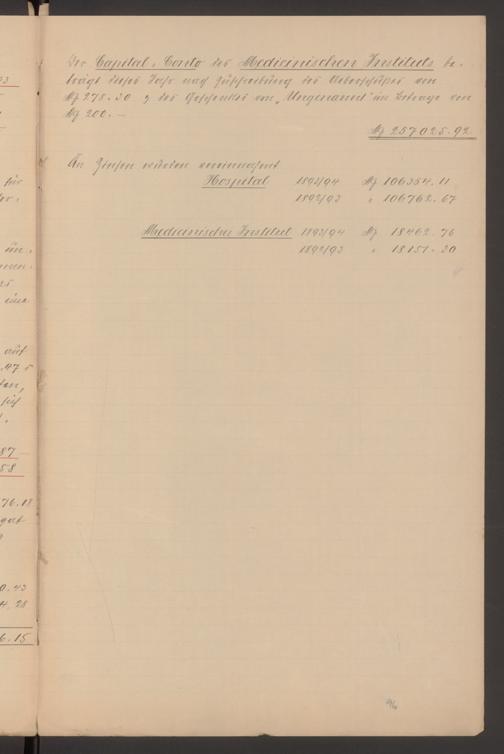 Der Capital-Conto des Medicinischen Instituts be-
trägt dieses Jahr nach Zuschreibung des Ueberschußes von
M 278.30 & des Geschenkes von „Ungenannt" im Betrage von
M 200.—
M 257025.92
An Zinsen wurden vereinnahmt
Hospital 1893/94 M 106354.11
1892/93 " 106762.67
Medicinisches Institut 1893/94 M 18462.76
1892/93 " 18151.30
96